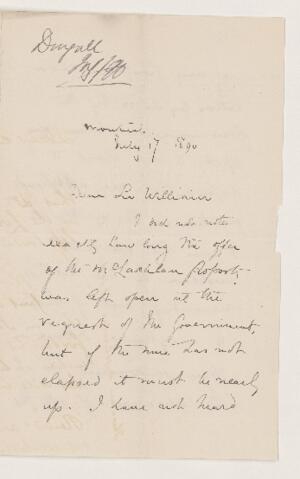 Dougall
July 17/90
Montreal
July 17 1890
Dear Sir William
I did not note
exactly how long the offer
of the McLachlan property
was left open at the
request of the Government,
but if the time has not
elapsed it must be nearly
up. I have not heard